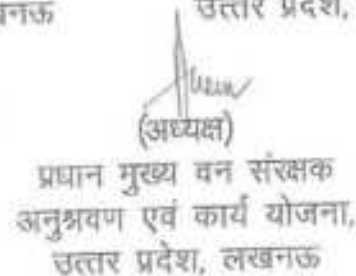 उत्तर प्रदेश,
(अध्यक्ष)
प्रधान मुख्य वन संरक्षक
अनुश्रवण एवं कार्य योजना,
उत्तर प्रदेश, लखनऊ